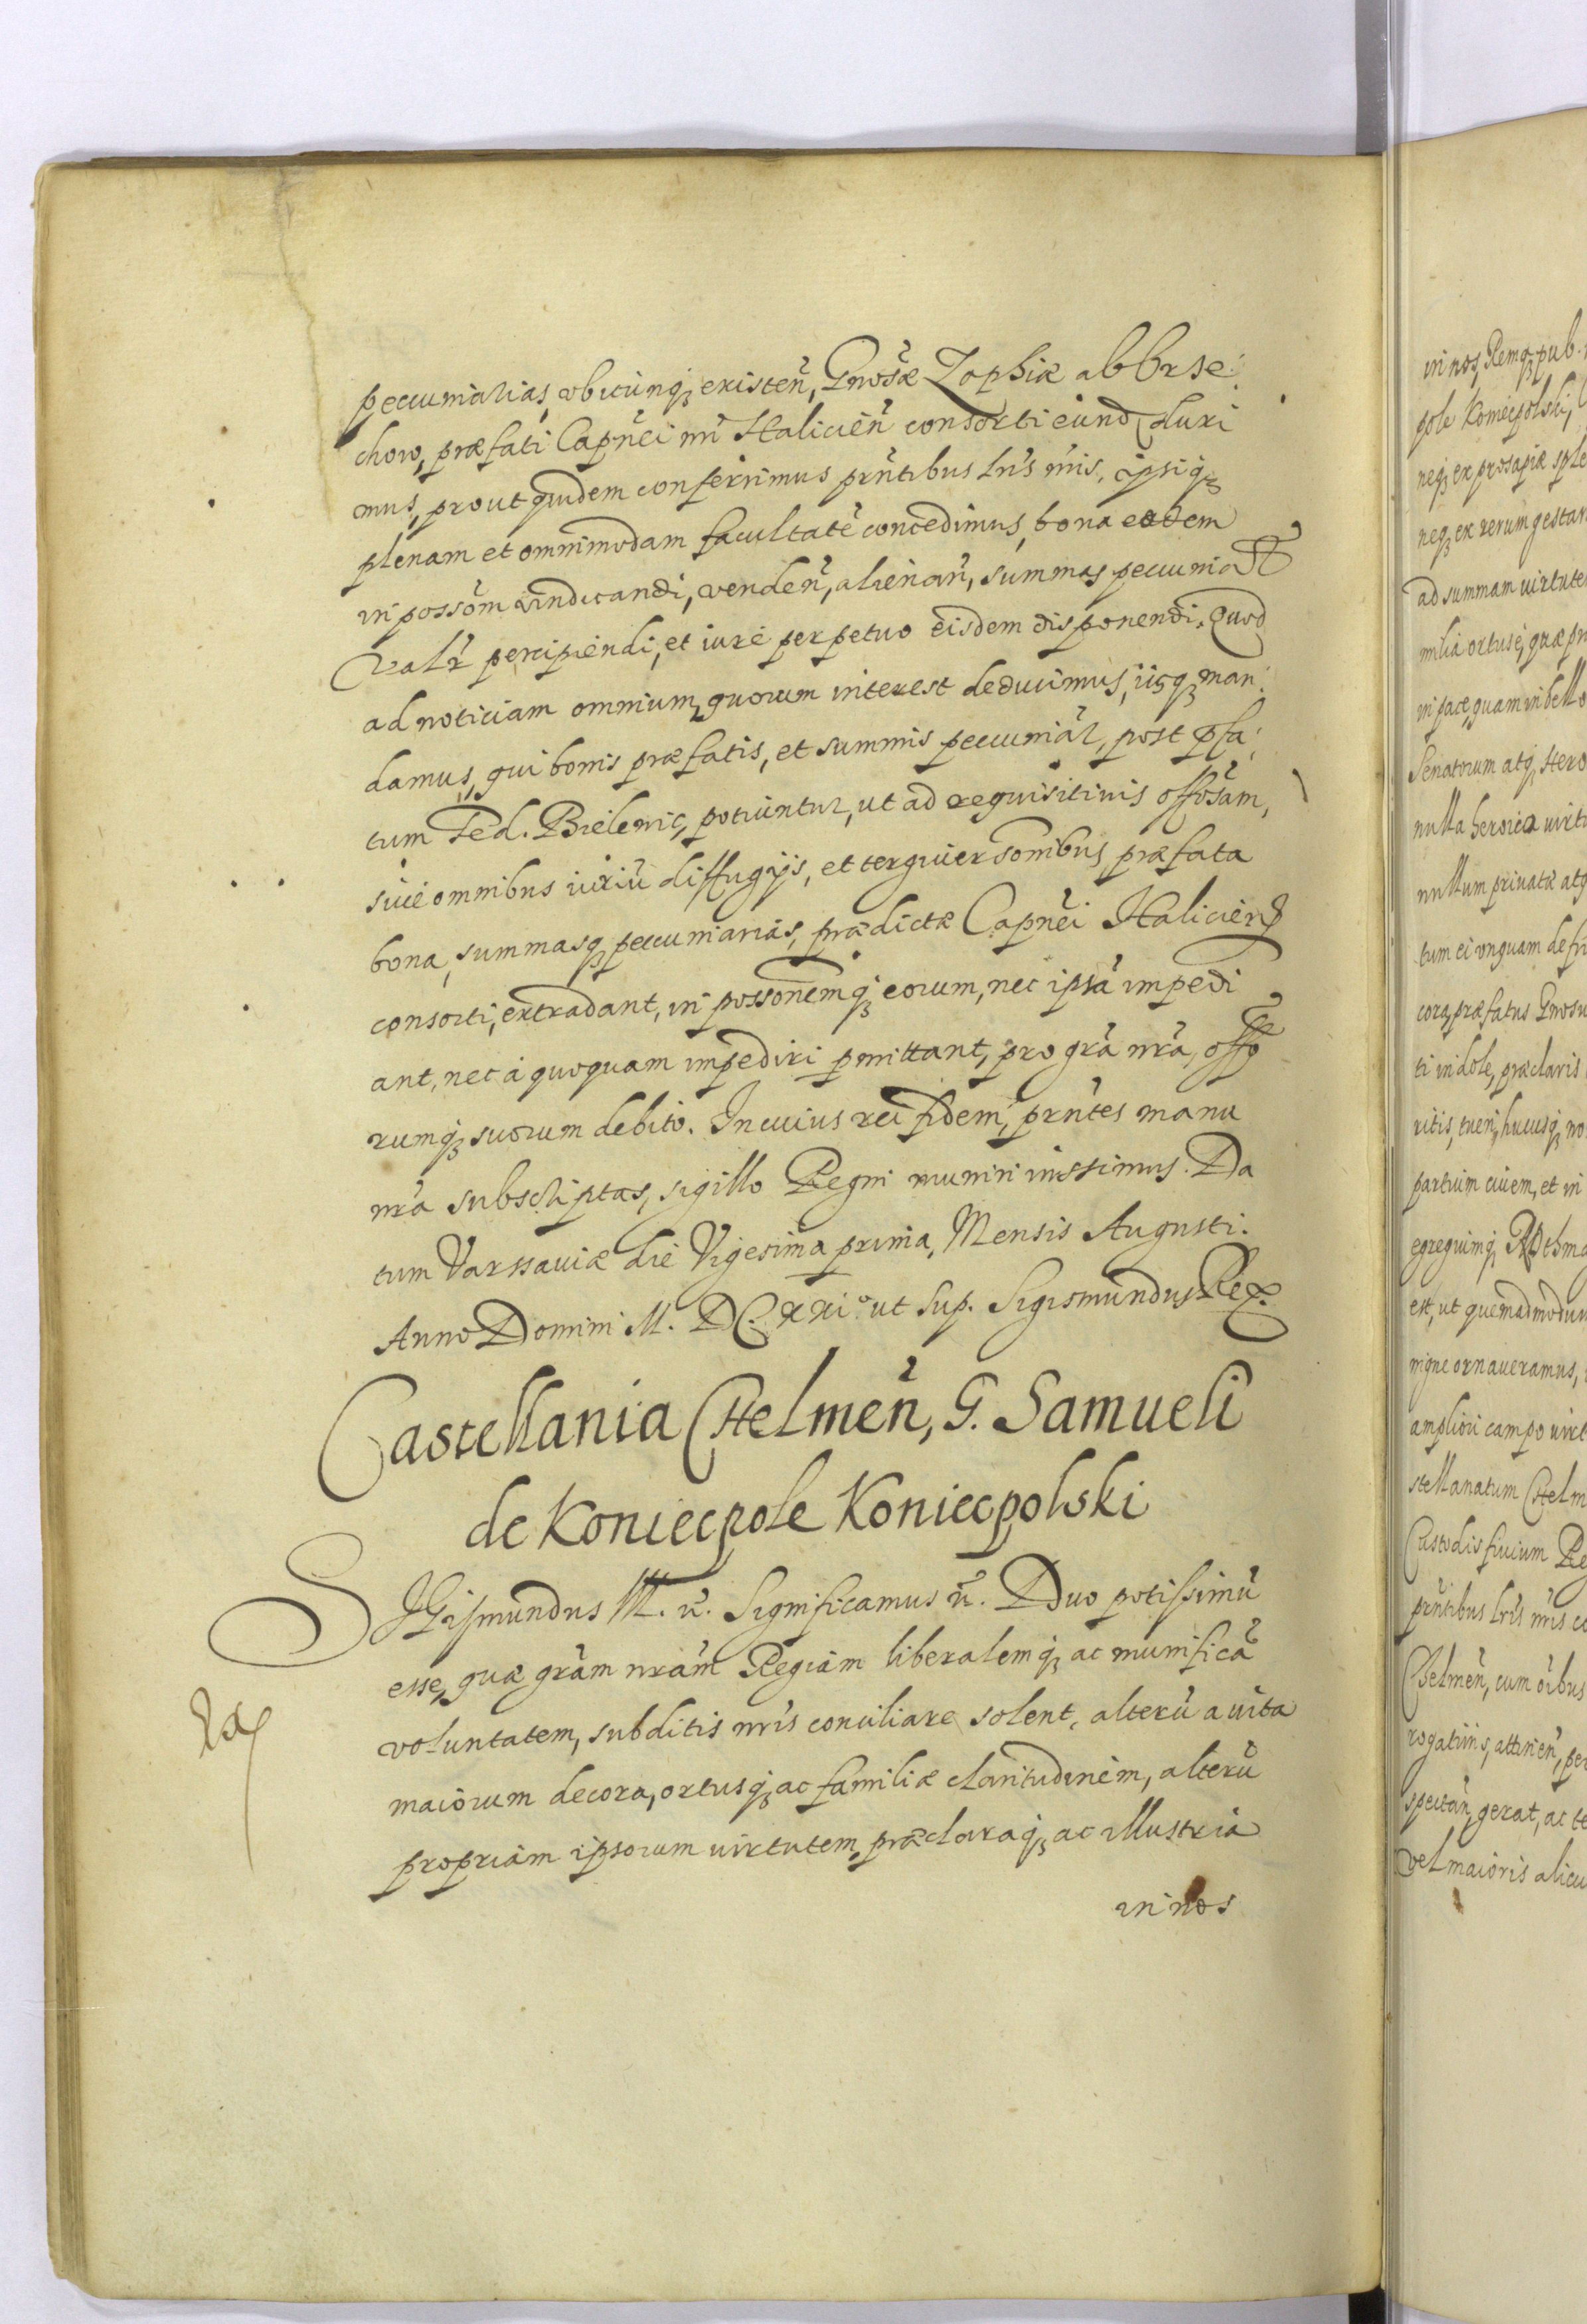 peccuniarias, vbicunq; existen̄, Gnōsæ Zophiæ ab Brse:
chow, præfati Capn̄ei nri Haliciēn consorti eiund duxi
mus, prout quidem conferimus prn̄tibus lrīs nrīs, ipsiq;
plenam et omnimodam facultatē concedimus, bona eadem
in possōm vindicandi, venden̄, alienan̄, summas peccunia
valr percipiendi, et iure perpetuo eisdem disponendi. Quod
ad noticiam omnium, quorum interest deducimus, iisq; man:
damus, qui bonis præfatis, et summis peccuniar, post p̄fa:
tum Fed. Bielenic, potiuntur, ut ad requisitinis offōsam,
siue omnibus iuriū diffugijs, et terguiersonibus, præfata
bona, summasq; peccuniarias, prædictæ Capn̄ei Halicien
consorti, extradant, in possōnemq; eorum, nec ipsā impedi
ant, nec à quoquam impediri pmittant, pro grā nrā, offo
rumq; suorum debito. In cuius rei fidem, prn̄tes manu
nrā subscriptas, sigillo Regni muniri iussimus. Da
tum Varssauiæ die Vigesima prima, Mensis Augusti.
Anno Domini M. DC. XXI.º ut sup. Sigismundus Rex.
Castellania Chelmēn, G. Samueli
de Koniecpole Koniecpolski
SIGismundus III. r̄. Significamus r̄. Duo potissimū
esse, quæ grām nrām Regiam liberalemq; ac munificā
voluntatem, subditis nrīs conciliare solent, alterū auita
maiorum decora, ortusq; ac familiæ claritudinem, alterū
propriam ipsorum uirtutem, præclaraq; ac illustria
in nos
in nos, Remq; pub.
pole Koniecpolski,
neq; ex prosapiæ sple
neq; ex rerum gestar
ad summam uirtute
milia ortus ē, quæ pr
in pace, quam in bello
Senatorum atq; Hero
nulla heroica uirt
nullum priuatæ atq
tum ei vnquam defu
cora, præfatus Gnosu
ti indole, præclaris
ritis, tuen, hucusq; no
partium ciuem, et in
egregiumq;
est, ut quemadmodum
nigne ornaueramus,
ampliori campo uirt
stellanatum Chelm
Custodis finium Re
prn̄tibus lrīs nrīs co
Chelmēn, cum oībus
rogatiuis, attinēn, per
spectān, gerat, ac te
vel maioris alicu